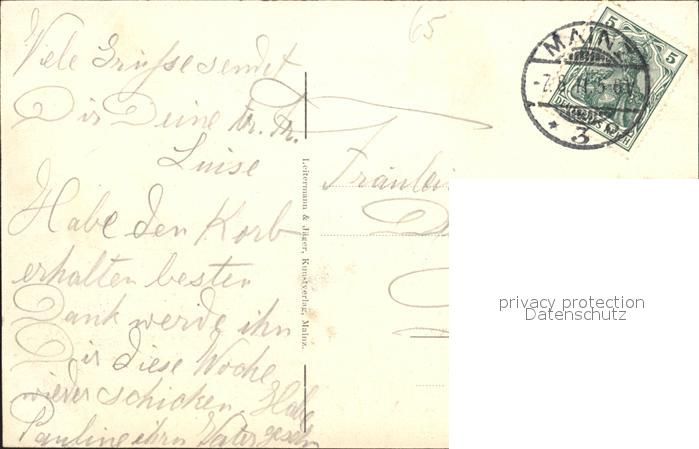 65
Viele Grüsse sendet
Dir Deine tr. Fr.
Luise
Habe den Korb
erhalten besten
Dank werde ihn
Dir diese Woche
wieder schicken. Habe
Pauline ihrn Vater gesehn
Leitermann & Jäger, Kunstverlag, Mainz.
Fräulein
MAINZ
-7.8.11.5-6N.
* 3
5 5
DEUTSCHES REICH
privacy protection
Datenschutz